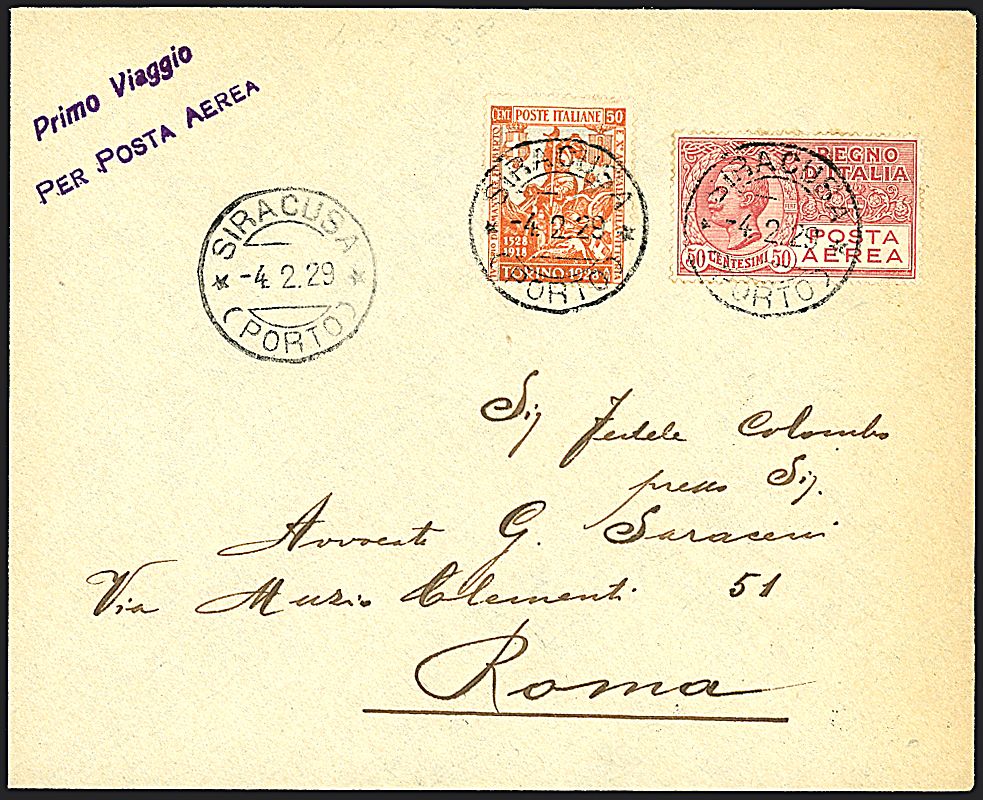 Primo Viaggio
PER POSTA AEREA
SIRACUSA
-4.2.29
(PORTO)
CENT POSTE ITALIANE 50
1528
1918
TORINO 1928
SIRACUSA
-4.2.29
PORTO
REGNO
D'ITALIA
POSTA
AEREA
50 CENTESIMI 50
SIRACUSA
-4.2.29
PORTO
Sig Fedele Colombo
presso Sig.
Avvocato G. Saraceni
Via Muzio Clementi 51
Roma